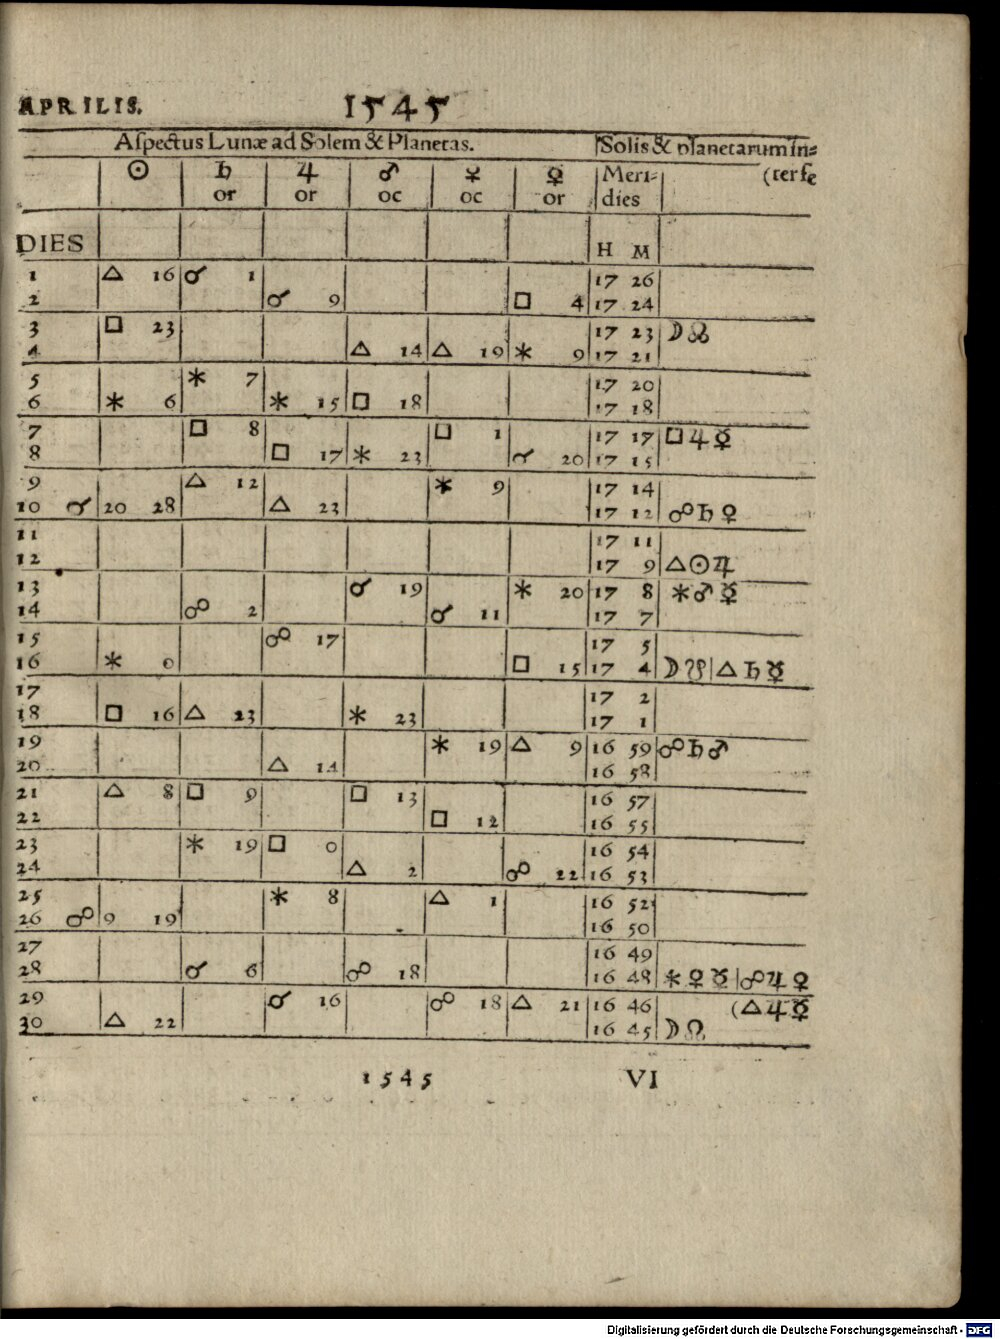 APRILIS. 1545
Aſpectus Lunæ ad Solem & Planetas. Solis & planetarum in=
☉ ♄ ♃ ♂ ☿ ♀ Meri= (ter ſe
or or oc oc or dies
DIES H M
1 △ 16 ☌ 1 17 26
2 ☌ 9 □ 4 17 24
3 □ 23 17 23 ☽ ☊
4 △ 14 △ 19 ⚹ 9 17 21
5 ⚹ 7 17 20
6 ⚹ 6 ⚹ 15 □ 18 17 18
7 □ 8 □ 1 17 17 □ ♃ ☿
8 □ 17 ⚹ 23 ☌ 20 17 15
9 △ 12 ⚹ 9 17 14
10 ☌ 20 28 △ 23 17 12 ☍ ♄ ♀
11 17 11
12 17 9 △ ☉ ♃
13 ☌ 19 ⚹ 20 17 8 ⚹ ♂ ☿
14 ☍ 2 ☌ 11 17 7
15 ☍ 17 17 5
16 ⚹ 0 □ 15 17 4 ☽ ☋ | △ ♄ ☿
17 17 2
18 □ 16 △ 23 ⚹ 23 17 1
19 ⚹ 19 △ 9 16 59 ☍ ♄ ♂
20 △ 14 16 58
21 △ 8 □ 9 □ 13 16 57
22 □ 12 16 55
23 ⚹ 19 □ 0 16 54
24 △ 2 ☍ 22 16 53
25 ⚹ 8 △ 1 16 52
26 ☍ 9 19 16 50
27 16 49
28 ☌ 6 ☍ 18 16 48 ⚹ ♀ ☿ | ☍ ♃ ♀
29 ☌ 16 ☍ 18 △ 21 16 46 (△ ♃ ☿
30 △ 22 16 45 ☽ ☊
1545 VI
Digitalisierung gefördert durch die Deutsche Forschungsgemeinschaft - DFG